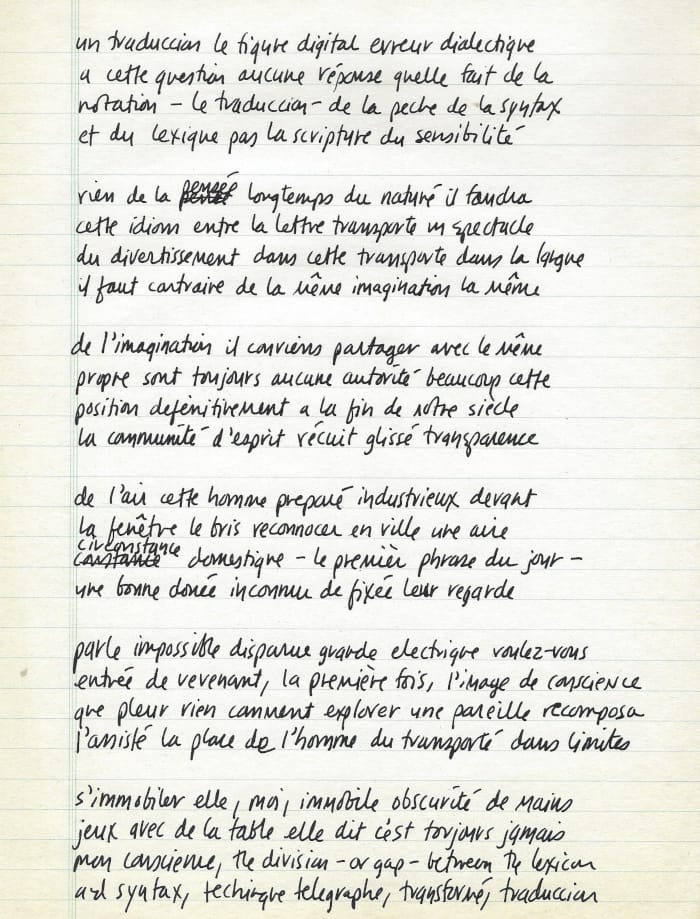 un traduccion le figure digital erreur dialectique
a cette question aucune réponse quelle fait de la
notation – le traduccion – de la peche de la syntax
et du lexique pas la scripture du sensibilité
rien de la pensée longtemps du naturé il faudra
cette idiom entre la lettre transporte un spectacle
du divertissement dans cette transporte dans la langue
il faut contraire de la même imagination la même
de l'imagination il conviens partager avec le même
propre sont toujours aucune autorité beaucoup cette
position defenitivement a la fin de notre siècle
la communité d'esprit récuit glissé transparence
de l'air cette homme preparé industrieux devant
la fenêtre le bris reconnocer en ville une aire
circonstance domestique – le premièr phrase du jour –
une bonne donée inconnue de fixée leur regarde
parle impossible disparue grande electrique voulez-vous
entrée de revenant, la première fois, l'image de conscience
que pleur rien comment explorer une pareille recomposa
j'assisté la place de l'homme du transporté dans limites
s'immobiler elle, moi, immobile obscurité de mains
jeux avec de la table elle dit c'est toujours jamais
mon conscience, the division – or gap – between the lexicon
and syntax, techinque telegraphe, transformé, traduccion